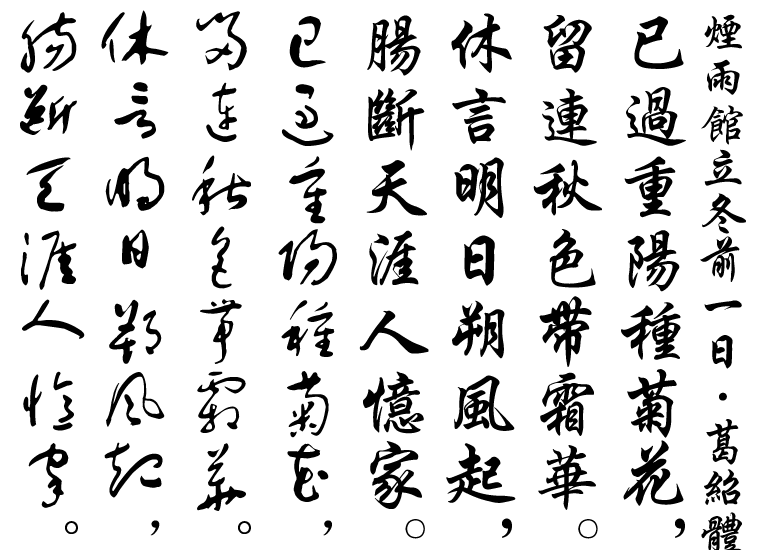 煙雨館立冬前一日·葛紹體
已過重陽種菊花，
留連秋色帶霜華。
休言明日朔風起，
腸斷天涯人憶家。
已過重陽種菊花，
留連秋色帶霜華。
休言明日朔風起，
腸斷天涯人憶家。